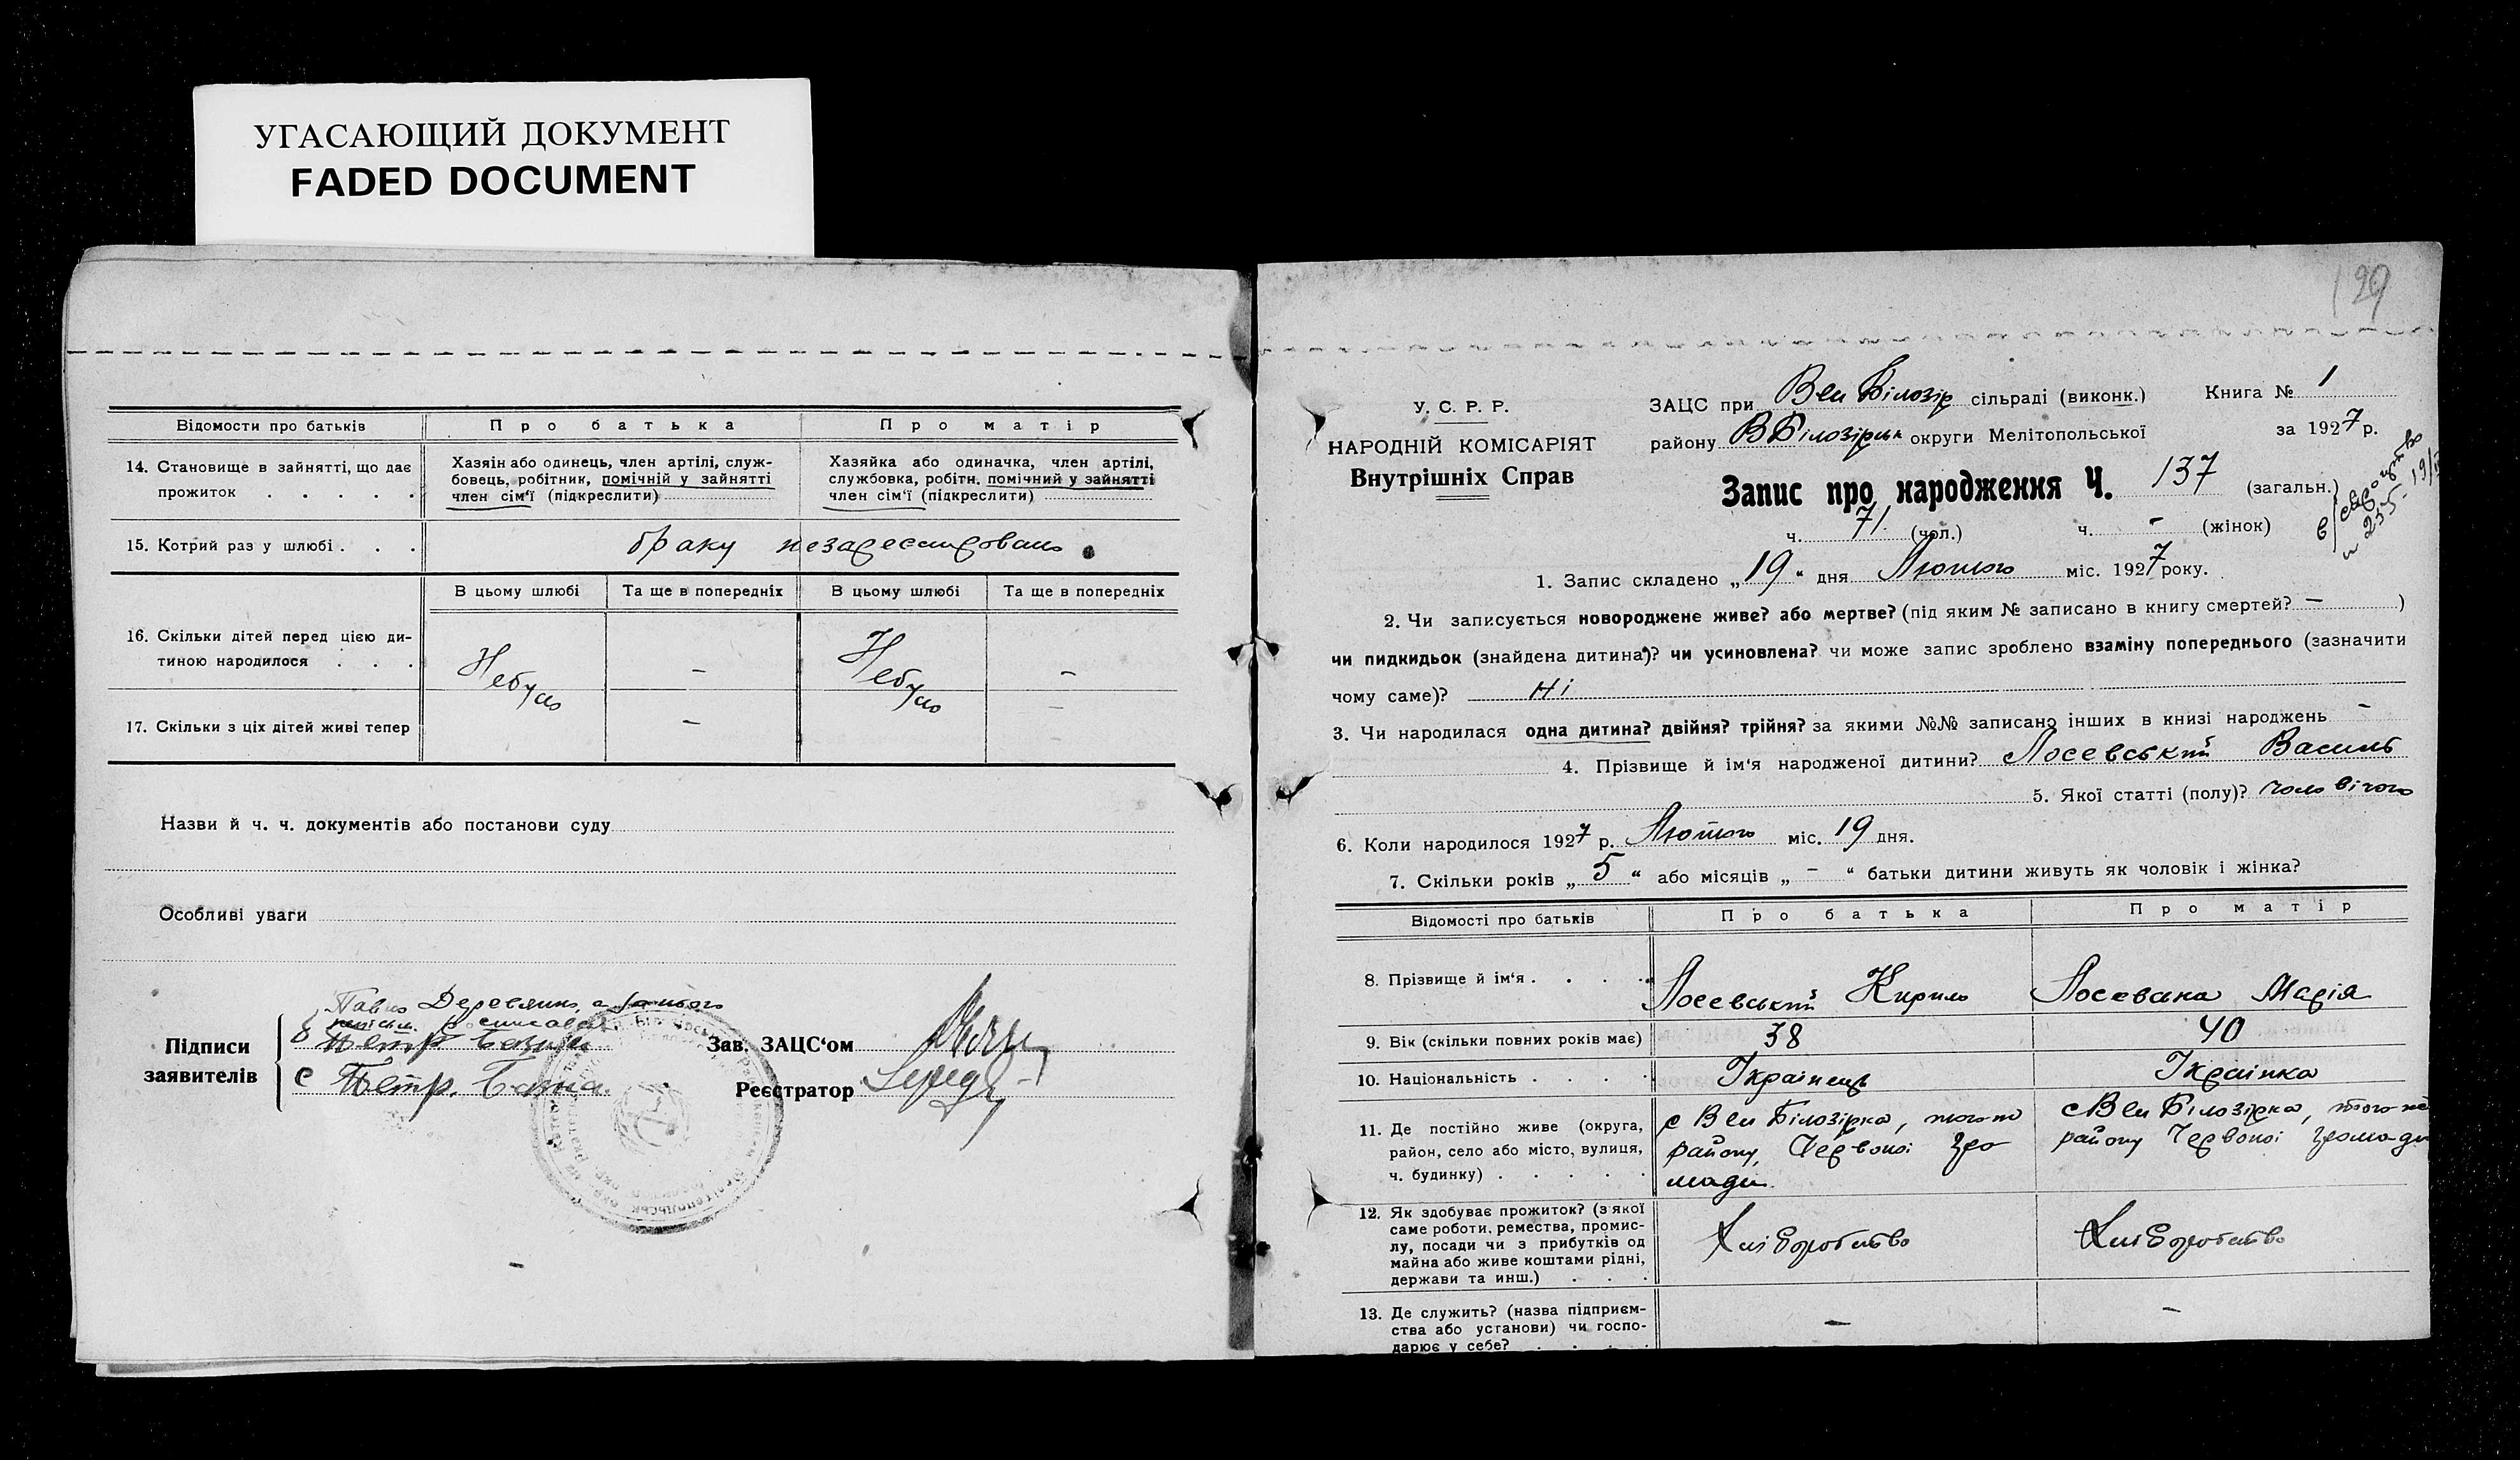 УГАСАЮЩИЙ ДОКУМЕНТ
FADED DOCUMENT
Відомости про батьків Про батька Про матір
14. Становище в зайнятті, що дає
прожиток . . . . .
Хазяїн або одинець, член артілі, служ-
бовець, робітник, помічній у зайнятті
член сім'ї (підкреслити)
Хазяйка або одиначка, член артілі,
службовка, робітн. помічний у зайнятті
член сім'ї (підкреслити)
15. Котрий раз у шлюбі . . . браку
В цьому шлюбі Та ще в попередніх В цьому шлюбі Та ще в попередніх
16. Скільки дітей перед цією ди-
тиною народилося . . . Небуло - Небуло -
17. Скільки з ціх дітей живі тепер - -
Назви й ч. ч. документів або постанови суду
Особливі уваги
Підписи
заявителів
Зав. ЗАЦС'ом
Реєстратор
129
У. С. Р. Р.
НАРОДНІЙ КОМІСАРІЯТ
Внутрішніх Справ
ЗАЦС при Вел Білозір сільраді (виконк.) Книга № 1
району ВБілозірськ округи Мелітопольської за 1927 р.
Запис про народження Ч. 137 (загальн.)
ч. 71 (чол.) ч. - (жінок)
1. Запис складено „19“ дня Лютого міс. 1927 року.
2. Чи записується новороджене живе? або мертве? (під яким № записано в книгу смертей? — )
чи пидкидьок (знайдена дитина)? чи усиновлена? чи може запис зроблено взаміну попереднього (зазначити
чому саме)? Ні
3. Чи народилася одна дитина? двійня? трійня? за якими №№ записано інших в книзі народжень -
4. Прізвище й ім'я народженої дитини? Лосевський Василь
5. Якої статті (полу)? чоловічого
6. Коли народилося 1927 р. Лютого міс. 19 дня.
7. Скільки років „5“ або місяців „-“ батьки дитини живуть як чоловік і жінка?
Відомості про батьків Про батька Про матір
8. Прізвище й ім'я . . . . Лосевський Кирило Марія
9. Вік (скільки повних років має) 38 40
10. Національність . . . . Українець Українка
11. Де постійно живе (округа,
район, село або місто, вулиця,
ч. будинку) . . . . .
с Вел Білозірка, того-ж
району, Червоної гро
мади
с Вел Білозірка, того-же
району Червоної громади
12. Як здобуває прожиток? (з якої
саме роботи, ремества, промис-
лу, посади чи з прибутків од
майна або живе коштами рідні,
держави та инш.) . . .
Хліборобство Хліборобство
13. Де служить? (назва підприєм-
ства або установи) чи госпо-
дарює у себе? . . . .
- -